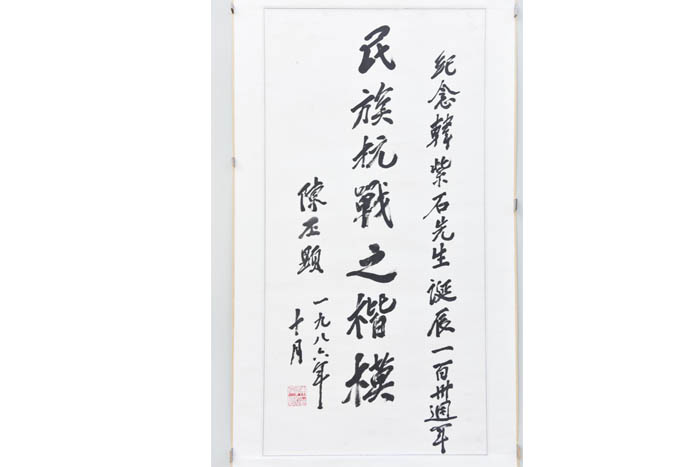 紀念韓紫石先生誕辰一百卅週年
民族抗戰之楷模
陳丕顯
一九八六年
十月